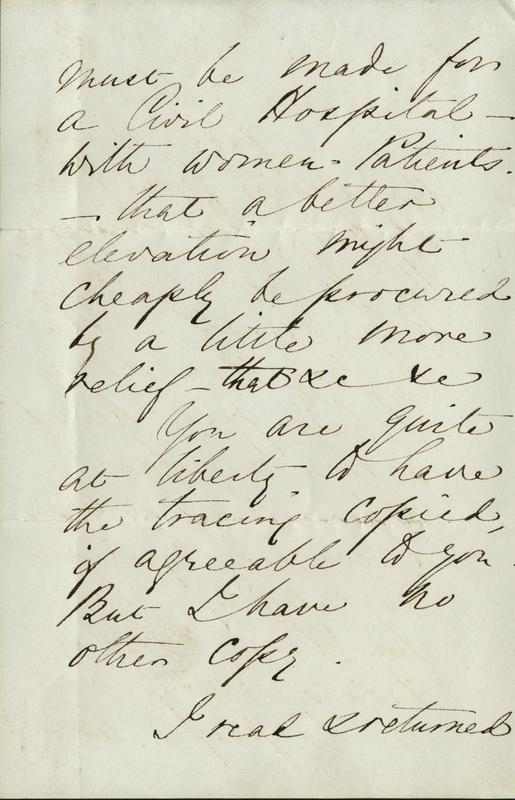 must be made for
a Civil Hospital —
with women - Patients.
— that a better
elevation might
cheaply be procured
by a little more
relief — that &c &c
You are quite
at liberty to have
the tracing copied,
if agreeable to you.
But I have no
other copy.
I read & returned